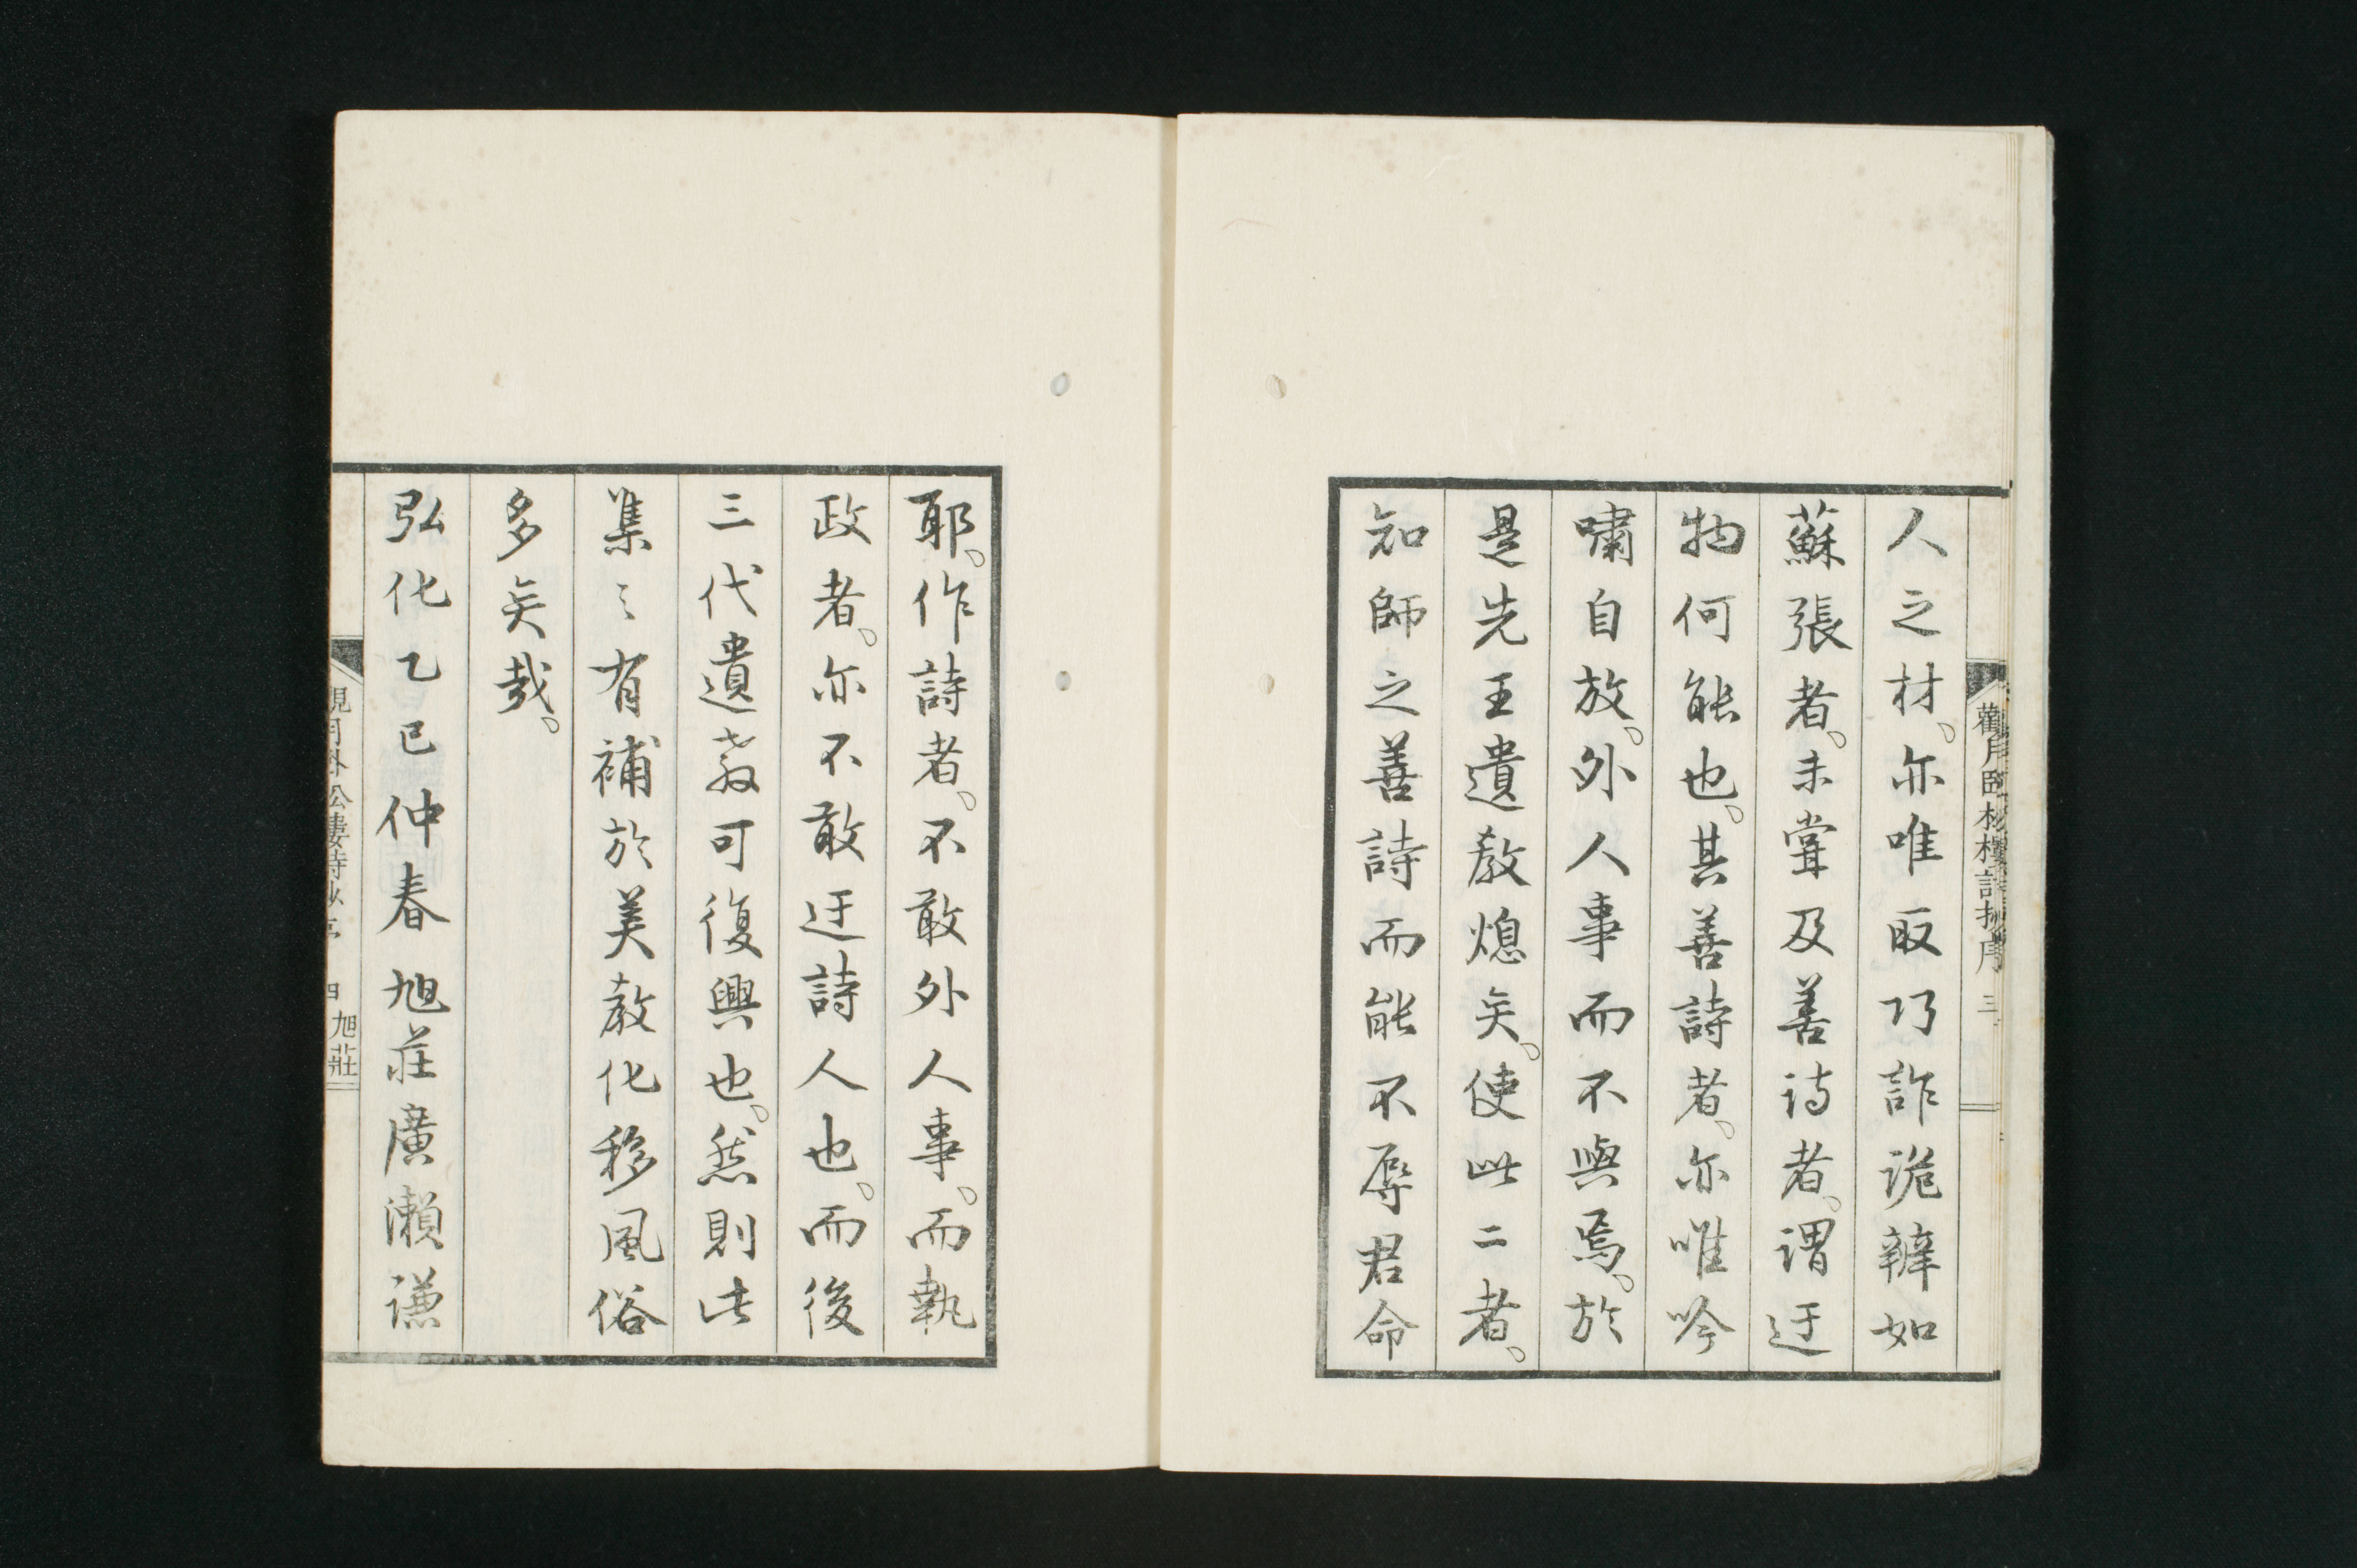 人之材。亦唯取巧詐詭辯如
蘇張者。未嘗及善詩者。謂迂
物何能也。其善詩者。亦唯吟
嘯自放。外人事而不與焉。於
是先王遺教熄矣。使此二者。
知師之善詩而能不辱君命
耶。作詩者。不敢外人事。而執
政者。亦不敢迂詩人也。而後
三代遺教可復興也。然則此
集之有補於美教化移風俗
多矣哉。
弘化乙巳仲春旭莊廣瀨謙
三
四 旭莊